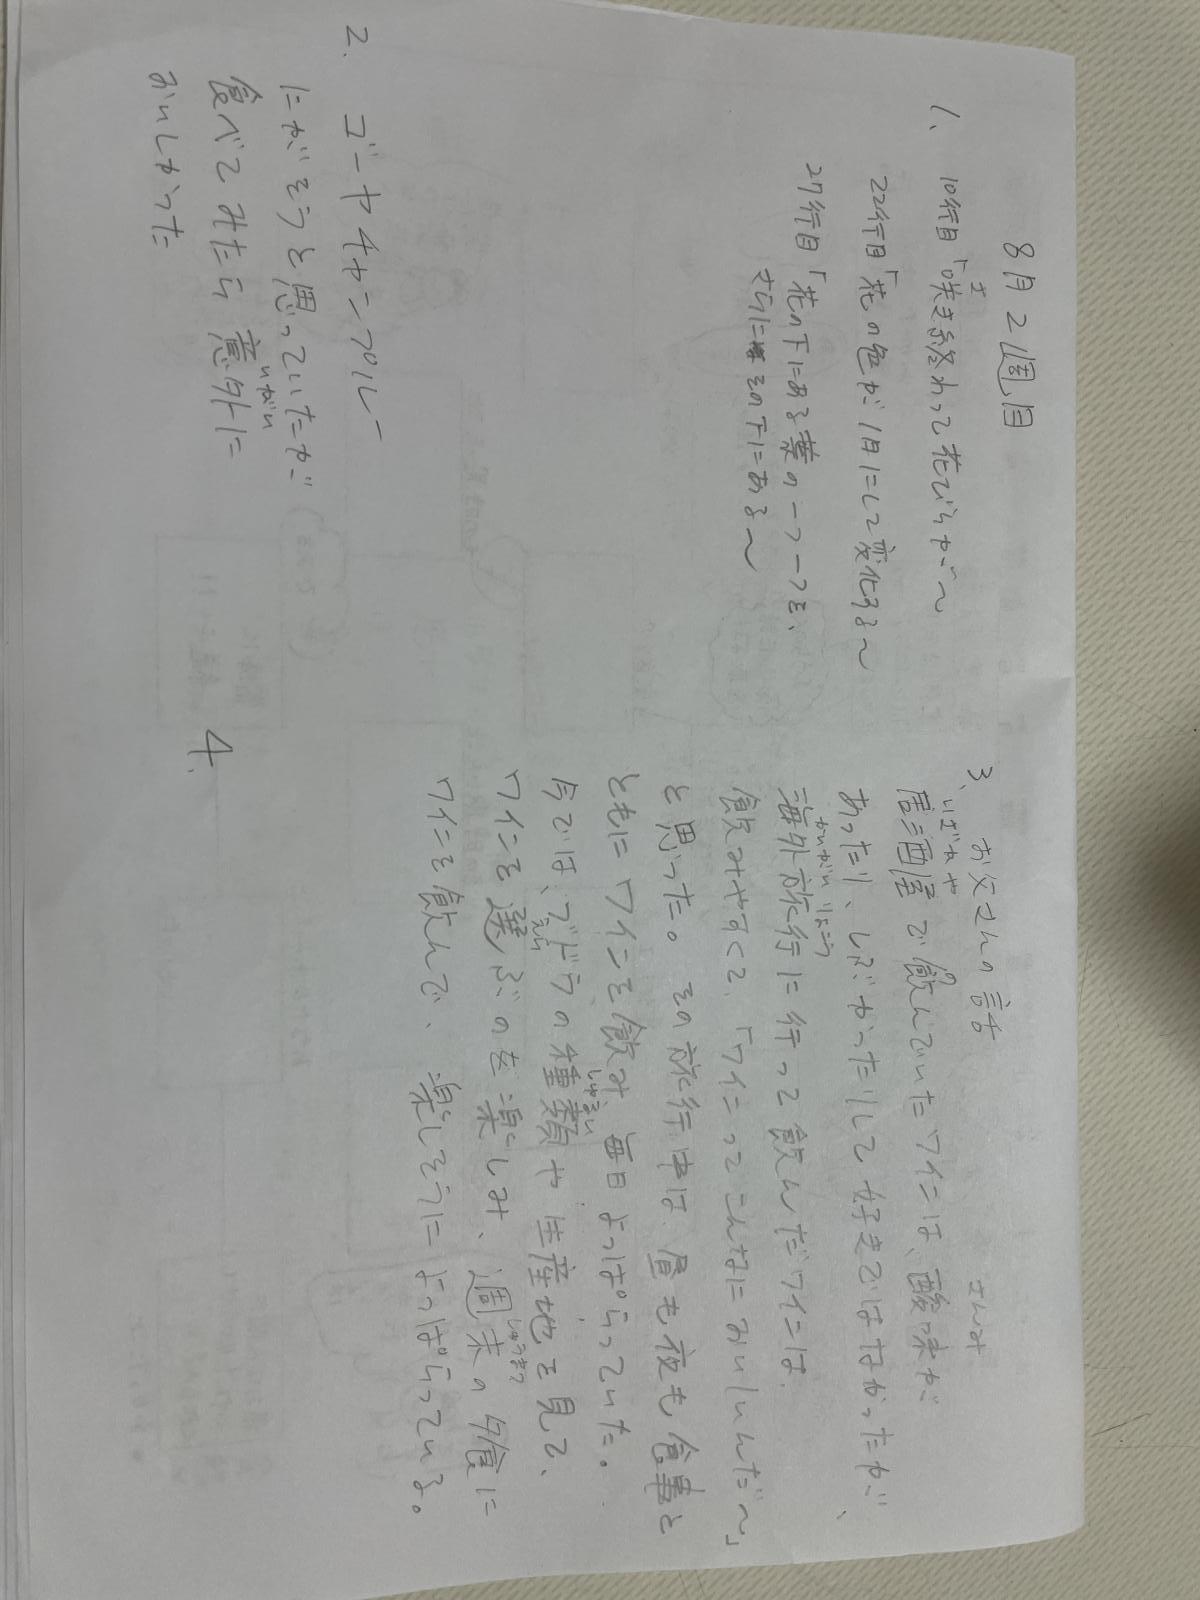 8月2週目
1、
10行目「咲き終わって花びらが〜
さ
22行目「花の色が1日にして変化する〜
27行目「花の下にある葉の一つ一つを、
さらにその下にある〜
2.
ゴーヤチャンプルー
にがそうと思っていたが
食べてみたら意外に
いがい
おいしかった
3、
お父さんの話
居酒屋で飲んでいたワインは、酸味が
いざかや
の
さんみ
あったり、しぶかったりして好きではなかったが、
海外旅行に行って飲んだワインは
かいがいりょこう
飲みやすくて、「ワインってこんなにおいしいんだ〜」
と思った。その旅行中は昼も夜も食事と
ともにワインを飲み毎日よっぱらっていた。
今では、ブドウの種類や生産地を見て、
しゅるい
ワインを選ぶのを楽しみ、週末の夕食に
えら
しゅうまつ
ワインを飲んで、楽しそうによっぱらっている。
4.